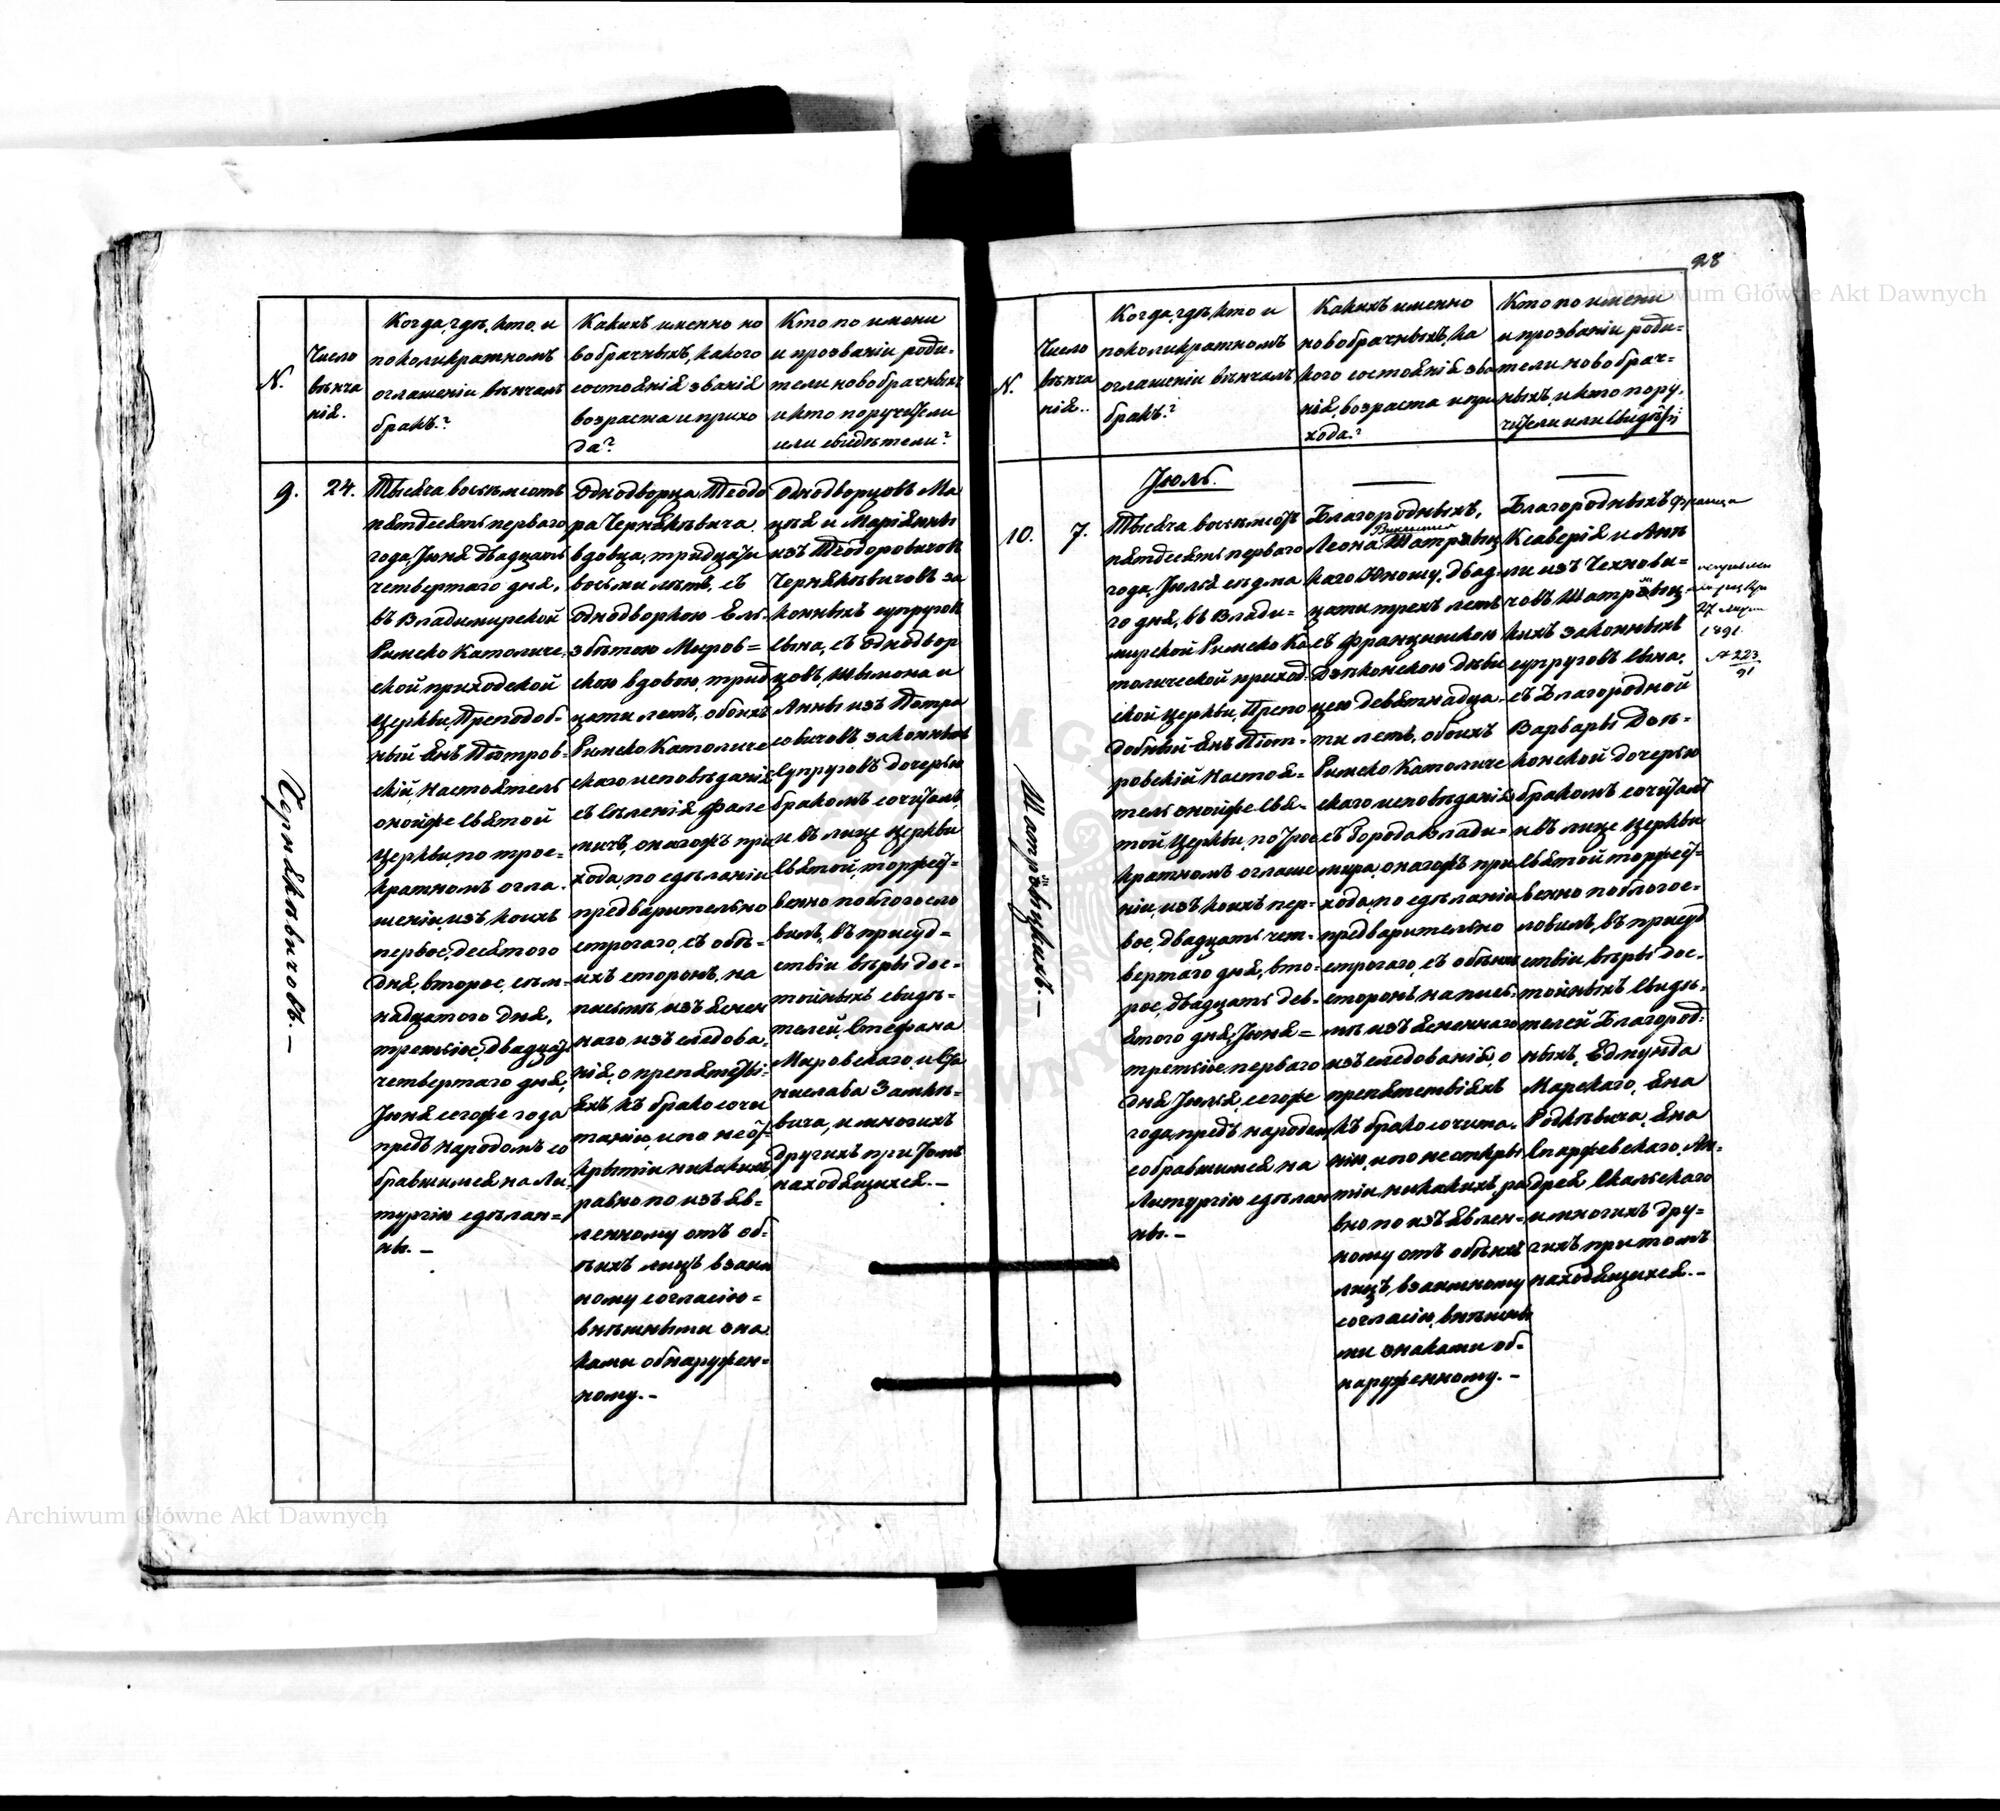 28
Archiwum Główne Akt Dawnych
N.
Число
вѣнча
нія.
Когда, гдѣ, кто, и
поколикратномъ
оглашеніи вѣнчалъ
бракъ?
Какихъ именно но
вобрачныхъ, какого
состоянія званія
возраста и прихо
да?
Кто по имени
и прозваніи роди-
тели новобрачныхъ
и кто поручители
или свидѣтели?
9.
24.
Тысяча восемьсотъ
пятдесятъ перваго
года, Іюня двадцать
четвертаго дня,
въ Владимирской
Римско Католиче
ской приходской
Церкви, Преподоб-
ный Янъ Піотров-
скій, Настоятель
онойже Святой
Церкви, по трое-
кратномъ огла-
шеніи, изъ коихъ
первое, десятого
дня, второе, сем-
надцатого дня,
третьіе, двадцать
четвертаго дня,
Іюня сегоже года
предъ народомъ со
бравшимся на Ли
тургію сдѣлан-
ны. –
Однодворца Теодо
ра Черняхѣвича
вдовца, тридцати
восьми лѣтъ, съ
Однодворкою Ель
збѣтою Миров=
скою вдовою, трид
цати летъ, обоихъ
Римско Католиче
скаго исповѣданія
съ Селенія Фале
мичъ, онагожъ при
хода, по сдѣланіи
предварительно
строгаго, съ обѣ-
ихъ сторонъ, на
письмѣ изъяснен
наго изъследова-
нія, о препятстві-
яхъ къ бракосоче
танію, и по неот-
крытіи никакихъ
равно по изъяв-
ленному отъ об-
ѣихъ лицъ взаим
ному согласію=
внѣшными зна
ками обнаружен=
ному. –
Однодворцовъ Ма
цѣя и Маріянны
изъ Теодоровичовъ
Черняхѣвичовъ за
конныхъ супруговъ
сына, съ Однодвор
цовъ, Шымона и
Анны изъ Петра
совичовъ, законныхъ
Супруговъ дочерью
бракомъ сочеталъ,
и въ лице Церкви
Святой, торжест-
венно поблогосло
вилъ, въ присуд-
ствіи вѣры дос-
тойныхъ свидѣ=
телей, Стефана
Мировскаго, и Ста
нислава Замкѣ-
вича, и многихъ
другихъ при томъ
находящихся. –
Черняхѣвичовъ. –
N.
Число
вѣнча
нія..
Когда, гдѣ, кто и
поколикратномъ
оглашеніи вѣнчалъ
бракъ?
Какихъ именно
новобрачныхъ, ка
кого состоянія зва
нія, возраста и при
хода?
Кто по имени
и прозваніи роди=
тели новобрач=
ныхъ, и кто пору-
чители или свидѣтѣ
Іюль.
10.
7.
Тысяча восемьсотъ
пятдесятъ перваго
года, Іюля седма
го дня, въ Влади=
мирской Римско Ка
толической приход
ской Церкви, Препо
добный Янъ Піот-
ровскій Настоя=
тель онойже Свя-
той Церкви, по трое
кратномъ оглаше
ніи, изъ коихъ пер-
вое, двадцать чет-
вертаго дня, вто-
рое, двадцать дев-
ятого дня, Іюня=
третьіе, перваго
дня Іюля, сегоже
года, предъ народом
собравшимся на
Литургію сдѣлан
ны. –
Благородныхъ,
Леона Шатровиц
каго Юношу, двад-
цати трехъ летъ
съ Францишкою
Дѣвконскою дѣви
цею девятнадца-
ти летъ, обоихъ
Римско Католиче
скаго исповѣданія
съ Города Влади=
мира, онагожъ при
хода, по сдѣланіи
предварительно
строгаго, съ обѣихъ
сторонъ на пись-
мѣ изъясненнаго
изъследованія, о
препятствіяхъ
къ бракосочета-
нію, и по неоткры
тіи никакихъ, ра
вно по изъявлен=
ному отъ обѣихъ
лицъ, взаимному
согласію, внѣшны
ми знаками об-
наруженному. –
Благородныхъ Франца
Ксаверія и Анѣ
ли изъ Чехнови=
човъ Шатровиц
кихъ законныхъ
супруговъ сына,
съ Благородной
Варвары Дѣв-
конской дочерью
бракомъ сочеталъ
и въ лице Церкви
Святой торжест-
венно поблогос-
ловилъ, въ присуд
ствіи вѣры дос-
тойныхъ свидѣ-
телей Благород-
ныхъ, Едмунда
Марскаго, Яна
Родкѣвича, Яна
Спаржевскаго, Ан-
дрея Скальскаго
и многихъ дру=
гихъ при томъ
находящихся. –
27
1891.
№ 223
91
Archiwum Główne Akt Dawnych